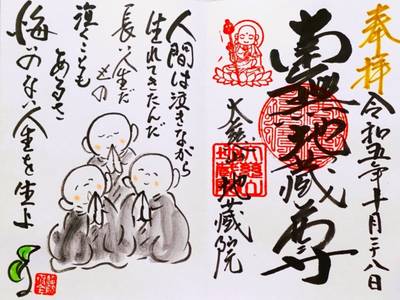 奉拝
令和五年十月二十八日
南無地蔵尊
地蔵院
人間は泣きながら
生れてきたんだ
長い人生だ
もの
泣くことも
あるさ
悔いのない人生を生よ